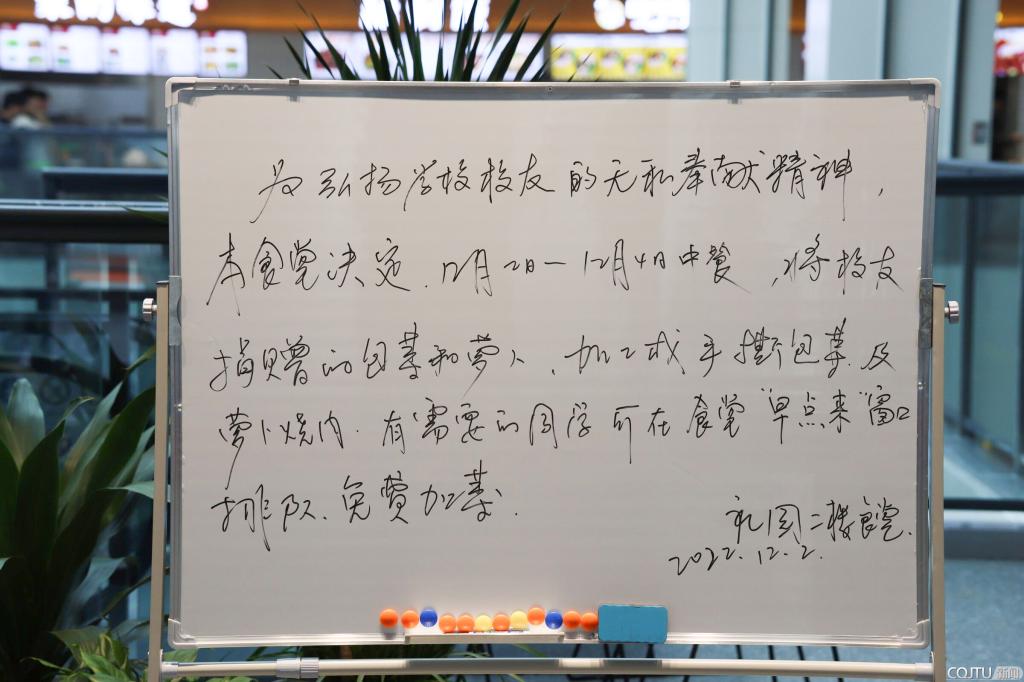 为弘扬学校校友的无私奉献精神，
本食堂决定.12月2日一12月4日中餐，将校友
捐赠的包菜和萝卜、加工成手撕包菜.及
萝卜烧肉.有需要的同学可在食堂"早点来"窗口
排队、免费加菜.
礼园二楼食堂.
2022.12.2.
CQJTU 新闻